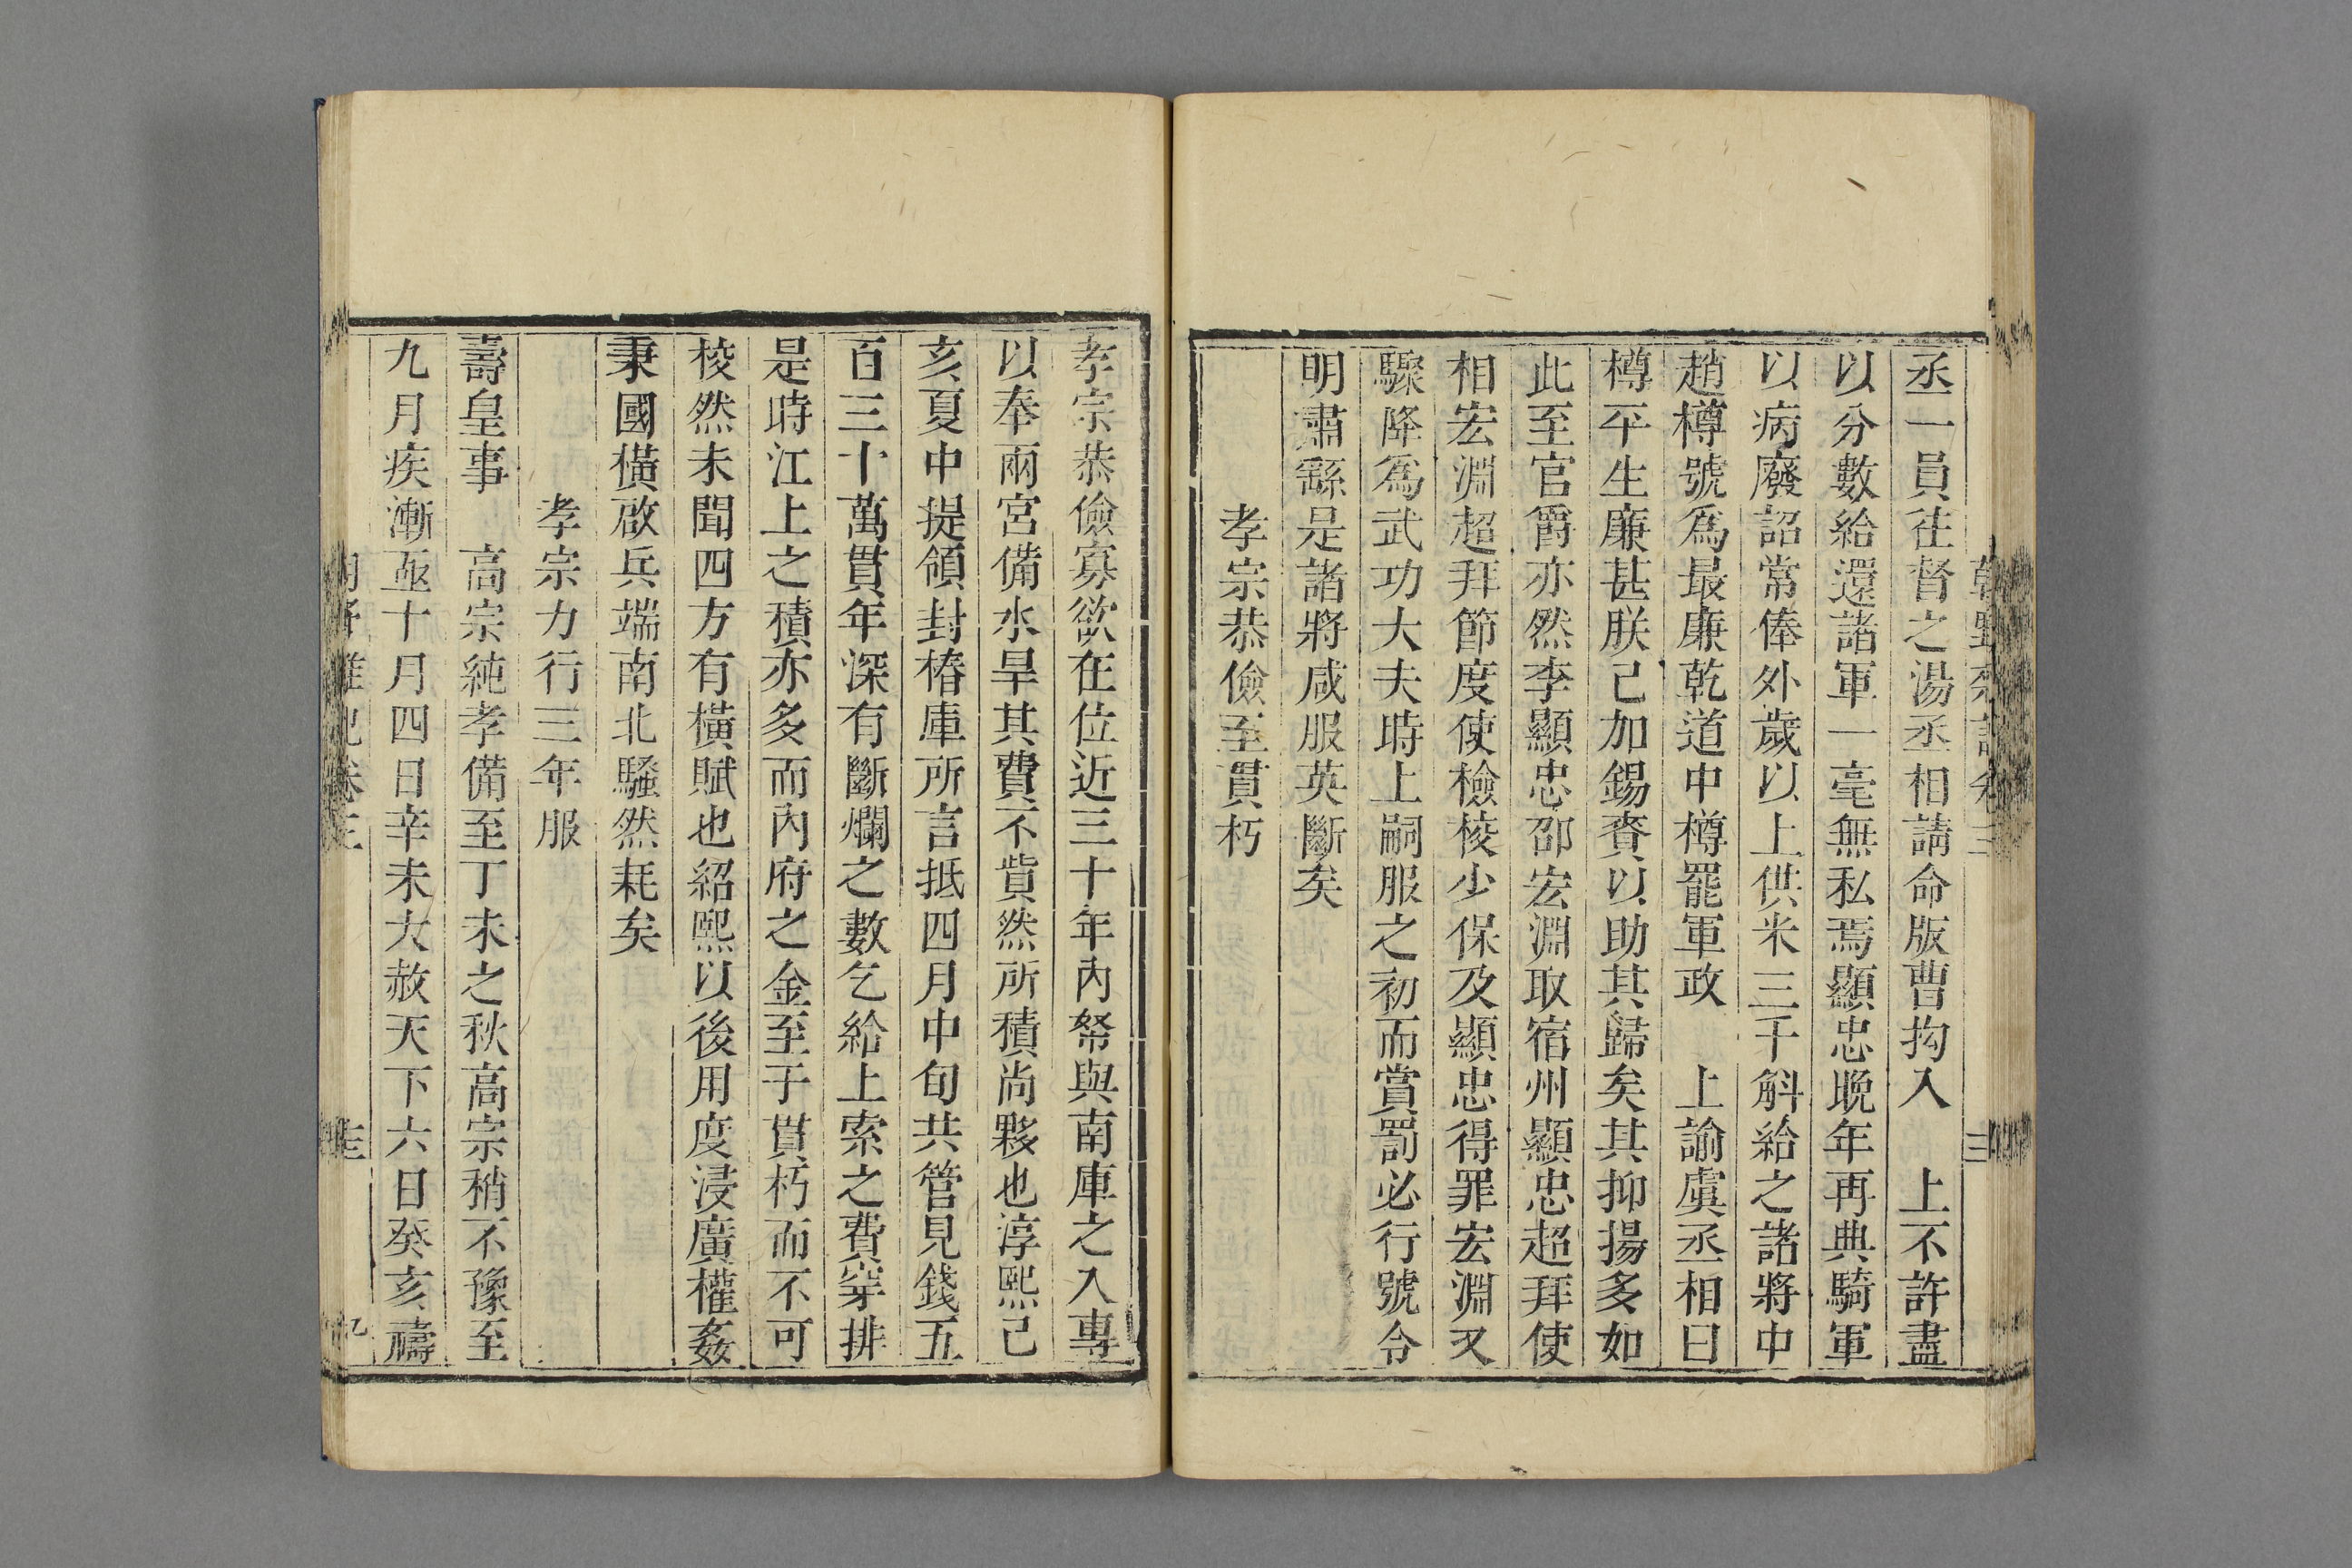 丞一員往督之湯丞相請命版曹拘入　上不許盡
以分數給還諸軍一毫無私焉顯忠晚年再典騎軍
以病廢詔常俸外歲以上供米三千斛給之諸將中
趙樽號爲最廉乾道中樽罷軍政　上諭虞丞相曰
樽平生廉甚朕已加錫賚以助其歸矣其抑揚多如
此至官爵亦然李顯忠邵宏淵取宿州顯忠超拜使
相宏淵超拜節度使檢校少保及顯忠得罪宏淵又
驟降爲武功大夫時上嗣服之初而賞罰必行號令
明肅繇是諸將咸服英斷矣
孝宗恭儉至貫朽
孝宗恭儉寡欲在位近三十年內帑與南庫之入專
以奉兩宮備水旱其費不貲然所積尚夥也淳熙己
亥夏中提領封樁庫所言抵四月中旬共管見錢五
百三十萬貫年深有斷爛之數乞給上索之費穿排
是時江上之積亦多而內府之金至于貫朽而不可
校然未聞四方有橫賦也紹熙以後用度浸廣權姦
秉國橫啟兵端南北騷然耗矣
孝宗力行三年服
壽皇事　高宗純孝備至丁未之秋高宗稍不豫至
九月疾漸亟十月四日辛未大赦天下六日癸亥禱